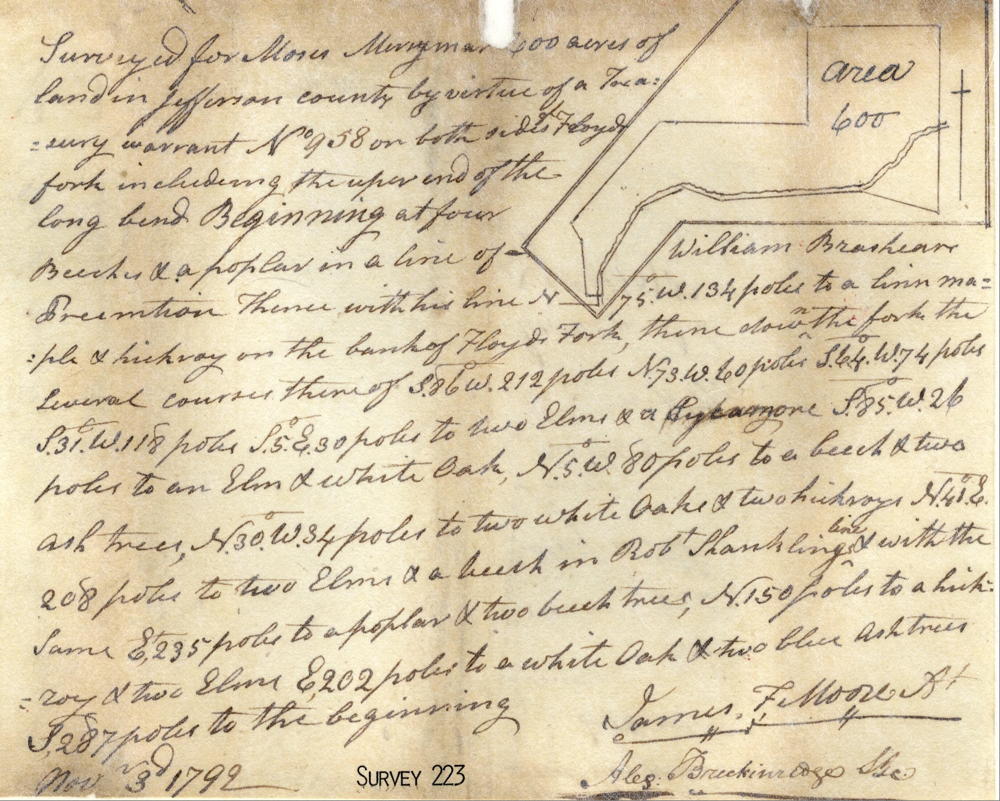 Surveyed for Moses Merryman 600 acres of
land in Jefferson county by virtue of a Trea=
=sury warrant No 958 on both sides Floyds
fork including the uper end of the
long bend Beginning at four
Beeches & a poplar in a line of William Brashears
Preemtion Thence with his line N 75°.W. 134 poles to a linn ma=
:ple & hickroy on the bank of Floyds Fork, thence down the fork the
several courses thereof S.86°W. 212 poles N.73.W. 60 poles S.64°.W. 74 poles
S.31°.W. 118 poles S.5°.E. 30 poles to two Elms & a Sycamore S.85°.W. 26
poles to an Elm & white Oak, N.5°.W. 80 poles to a beech & two
ash trees, N.30°.W. 34 poles to two white Oaks & two hickroys N.41°.E.
208 poles to two Elms & a beech in Robt Shanklings line & with the
same E, 235 poles to a poplar & two beech trees, N. 150 poles to a hick:
=roy & two Elms E, 202 poles to a white Oak & two blue Ash trees
S, 287 poles to the beginning
James, F, Moore At
Nov 3d 1792
Alex. Breckinridge
area
600
SURVEY 223